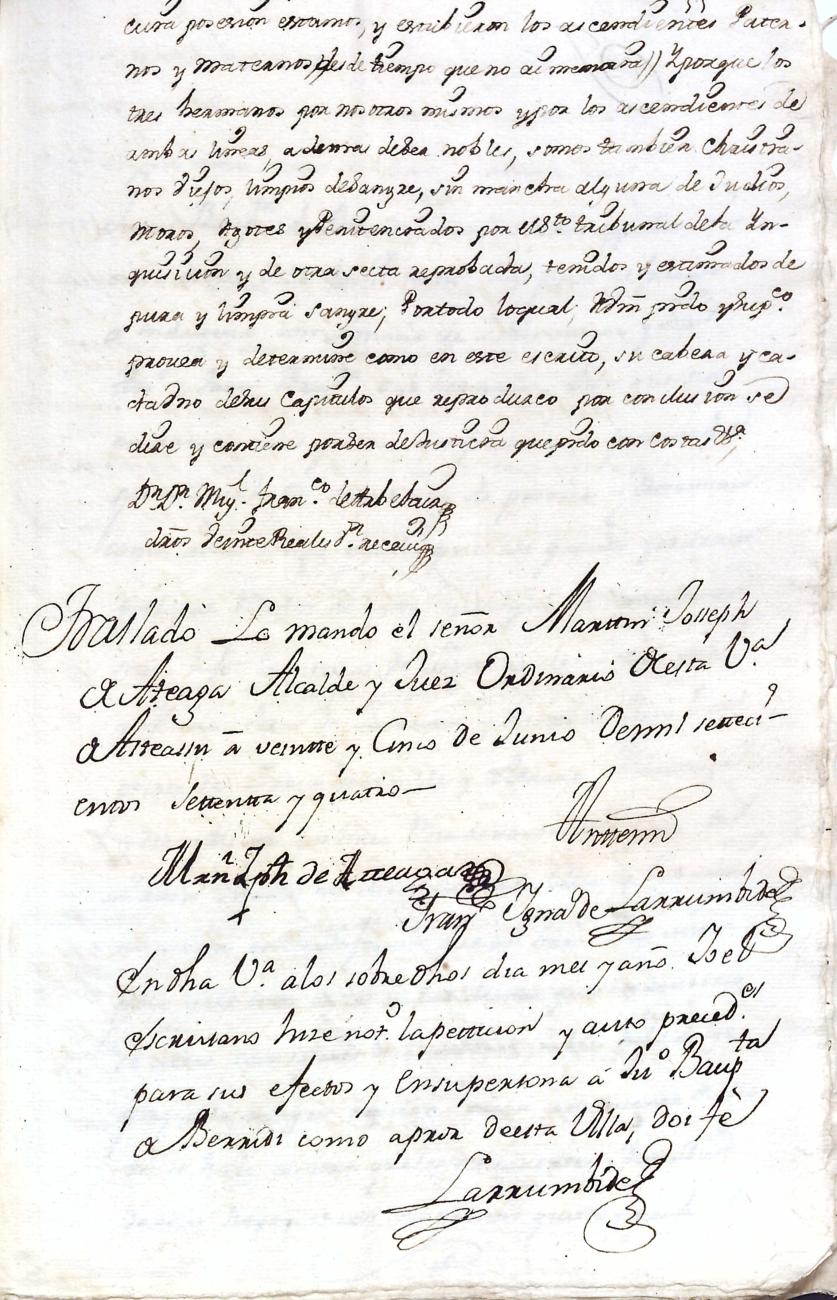 cuia posesion estamos, y estubieron los ascendientes Pater-
nos y maternos desde tiempo que no ai memoria // Yporque los
tres hermanos por nosotros mismos y por los ascendientes de
ambas lineas, ademas deser nobles, somos tambien Christia-
nos Viejos, limpios desangre, sin mancha alguna de Judios,
Moros, Agotes y Penitenciados por el Sto. tribunal dela Yn-
quisicion y de otra secta reprobada, tenidos y estimados de
pura y limpia sangre; Portodo loqual, A Vm pido y supco.
provea y determine como en este escrito, su cabeza y ca-
da uno desus Capitulos que reproduzco por conclusion se
dice y contiene porser deJusticia quepido con costas Va.
Dn. Dn. Migl. Franco. de
dros Veinte Reales
Traslado Lo mando el señor Martin Joseph
de Ateaga Alcalde y Juez Ordinario Desta Va.
de Asteassu â veinte y Cinco de Junio Demil setteci-
entos settentta y quatro—
Anttemi
Mrn. Jph de Atteaga
Fran Ignao de Larrumbide
Endha Va. alos sobredhos dia mes y año Yo el
Escriuano hize noto. lapeticion y auto precedes
para sus efectos y Ensupersona â Juo Baupta
de Berridi como apror. deesta Villa, doi fè
Larrumbide